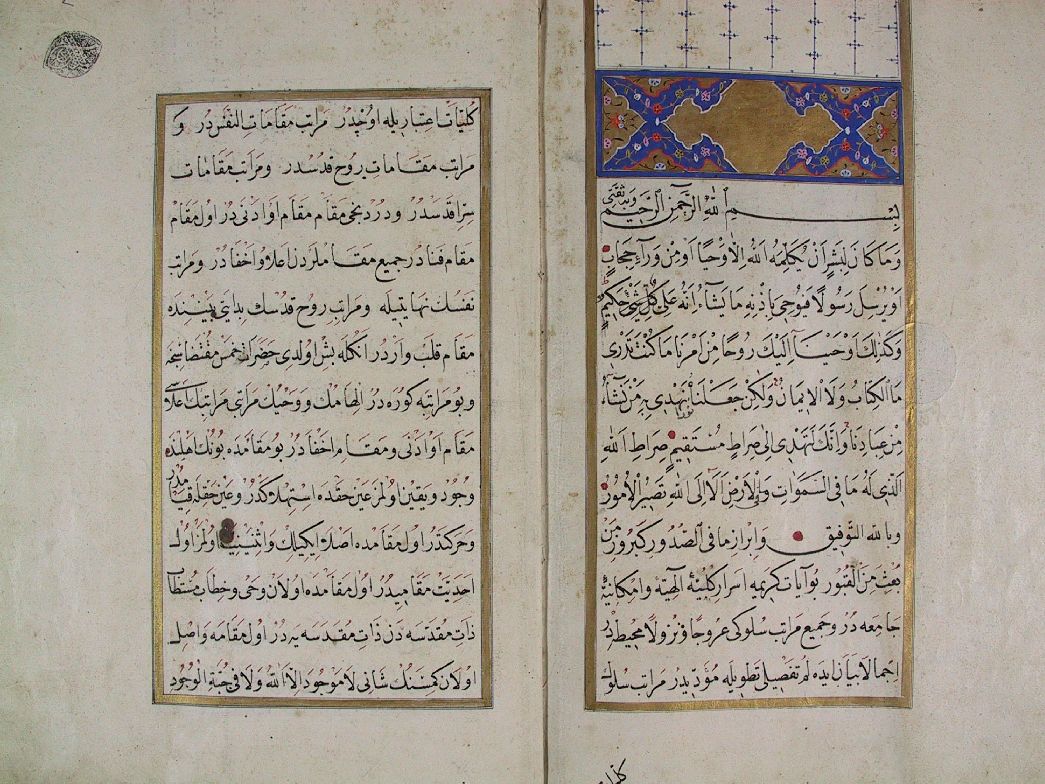 بسم الله الرحمن الرحيم وبه ثقتى
وَمَا كَانَ لِبَشَرٍ اَنْ يُكَلِّمَهُ اللهُ اِلَّا وَحْيًا اَوْ مِنْ وَرَآءِ حِجَابٍ
اَوْ يُرْسِلَ رَسُولًا فَيُوحِىَ بِاِذْنِهِ مَا يَشَآءُ اِنَّهُ عَلِىٌّ حَكِيمٌ
وَكَذٰلِكَ اَوْحَيْنَآ اِلَيْكَ رُوحًا مِنْ اَمْرِنَا مَا كُنْتَ تَدْرِى
مَا الْكِتَابُ وَلَا الْاِيمَانُ وَلٰكِنْ جَعَلْنَاهُ نُورًا نَهْدِى بِهِ مَنْ نَشَآءُ
مِنْ عِبَادِنَا وَاِنَّكَ لَتَهْدِى اِلٰى صِرَاطٍ مُسْتَقِيمٍ صِرَاطِ اللهِ
الَّذِى لَهُ مَا فِى السَّمٰوَاتِ وَمَا فِى الْاَرْضِ اَلَا اِلَى اللهِ تَصِيرُ الْاُمُورُ
وبالله التوفيق وابراز ما فى الصدور كبروز من
بعث من القبور بو آيات كريمه اسرار كليۀ الهيه وامكانيۀ
جامعه در وجميع مراتب سلوكى عروجا ونزولا محيط در
اجمالا بيان ايده لم تفصيلى تطويله مؤديدر مراتب سلوك
كليات اعتباريله اوچدر مراتب مقامات النفس در و
مراتب مقامات روح قدسدر ومراتب مقامات
سر اقدسدر ودردنجى مقام مقام او ادنى در اول مقام
مقام فنادر جميع مقاملردن اعلا واخفادر ومراتب
نفسك نهايتيله ومراتب روح قدسك بدايتى بيننده
مقام قلب واردر انكله بش اولدى حضرات خمس مقتضاسنجه
وبو مراتبه كوره در الهامك ووحيك مراتبى مراتبك اعلاسى
مقام او ادنى ومقام اخفادر بو مقامده بونك اهلنده
وجود ويقين اولمز عين حقده استهلاكدر وعين حقله قيامدر
وحركتدر اول مقامده اصلا ايكيلك واثنينيت اولمز اول
احديت مقاميدر اول مقامده اولان وحى وخطاب مستطاب
ذات مقدسه دن ذات مقدسه يه در اول مقامه واصل
اولان كمسنك شانى لا موجود الا الله ولا فى جبة الوجود